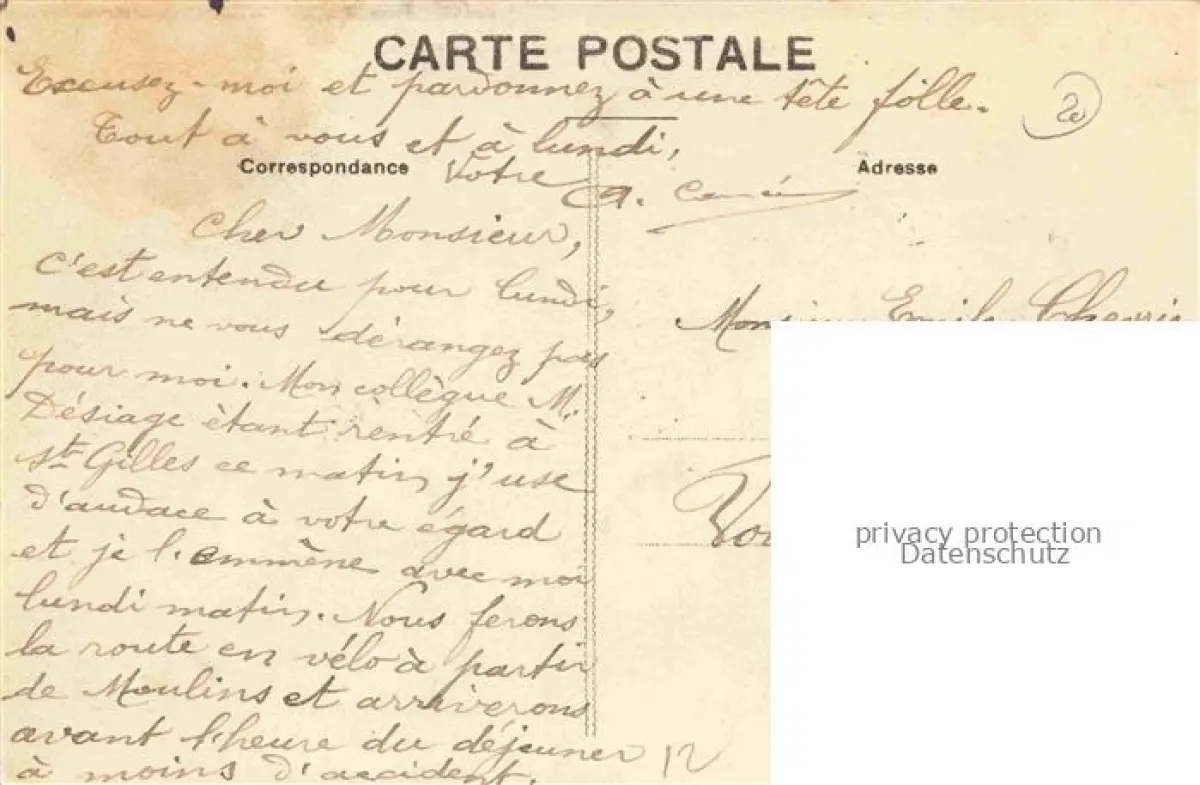 CARTE POSTALE
Excusez-moi et pardonnez à une tête folle.
Tout à vous et à lundi,
Correspondance
Votre
A.
Adresse
20
Cher Monsieur,
c'est entendu pour lundi,
mais ne vous dérangez pas
pour moi. Mon collègue M.
Désiage étant rentré à
St Gilles ce matin, j'use
d'audace à votre égard
et je l'emmène avec moi
lundi matin. Nous ferons
la route en vélo à partir
de Moulins et arriverons
avant l'heure du déjeuner
à moins d'accident.
12
Monsieur Emile
privacy protection
Datenschutz